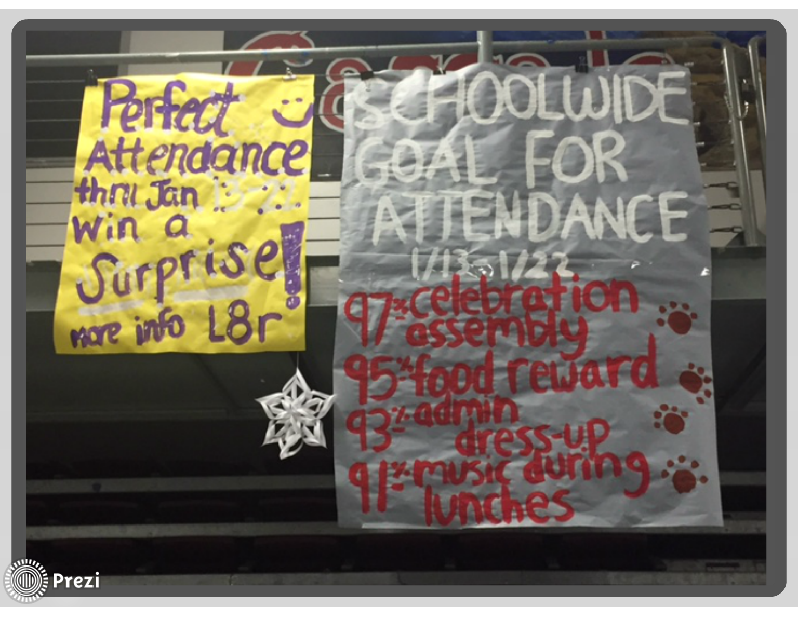 Perfect
Attendance
thru Jan 13-22
win a
Surprise!
more info L8r
SCHOOLWIDE
GOAL FOR
ATTENDANCE
1/13-1/22
97% celebration
assembly
95% food reward
93% admin
dress-up
91% music during
lunches
Prezi